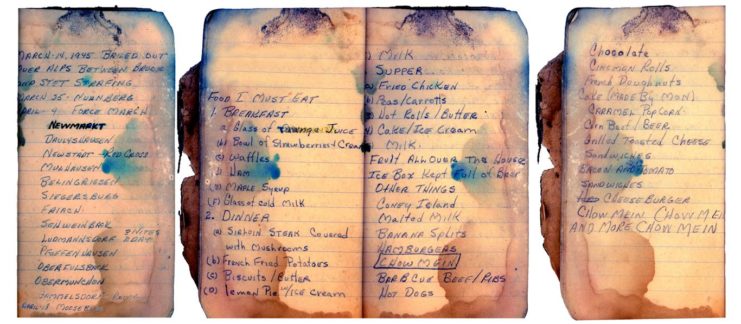 MARCH-14, 1945 BAILED OUT
OVER ALPS BETWEEN BRUCK
AND STET STRAFING
MARCH 25 - NURNBERG
APRIL 4 FORCE MARCH
NEWMARKT
NEWSTADT - RED CROSS
MULHAUSEN
BEHINGRIESEN
SIEGERSBURG
SCHWEINBACK
LUDMANNSDORF 2 NITES
PFEFFENHAUSEN
OBERMUNCHEN
Food I Must Eat
1. BREAKFAST
a. Glass of Orange Juice
(b) Bowl of Strawberries & Cream
(c) Waffles
Ham
(e) Maple Syrup
(F) Glass of cold Milk
2. DINNER
(a) SIRLOIN STEAK COVERED
with Mushrooms
(b) French Fried Potatoes
(c) Biscuits / Butter
(d) Lemon Pie w/ICE CREAM
Milk
SUPPER
Fried Chicken
Peas/Carrotts
Hot Rolls / Butter
Cake / Ice Cream
Milk
FRUIT ALL OVER THE HOUSE
ICE BOX KEPT Full of Beer
OTHER THINGS
CONEY ISLAND
Malted Milk
BANANA SPLITS
HAMBURGERS
CHOW MEIN
BAR B CUE BEEF / RIBS
HOT DOGS
Chocolate
CINAMON ROLLS
French Doughnuts
CAKE (MADE BY MOM)
CARAMEL POPCORN
Corn Beef / BEER
Grilled Toasted Cheese
SANDWICHES
BACON AND TOMATO
SANDWICHES
CHEESE BURGER
CHOW MEIN, CHOW MEIN
AND MORE CHOW MEIN